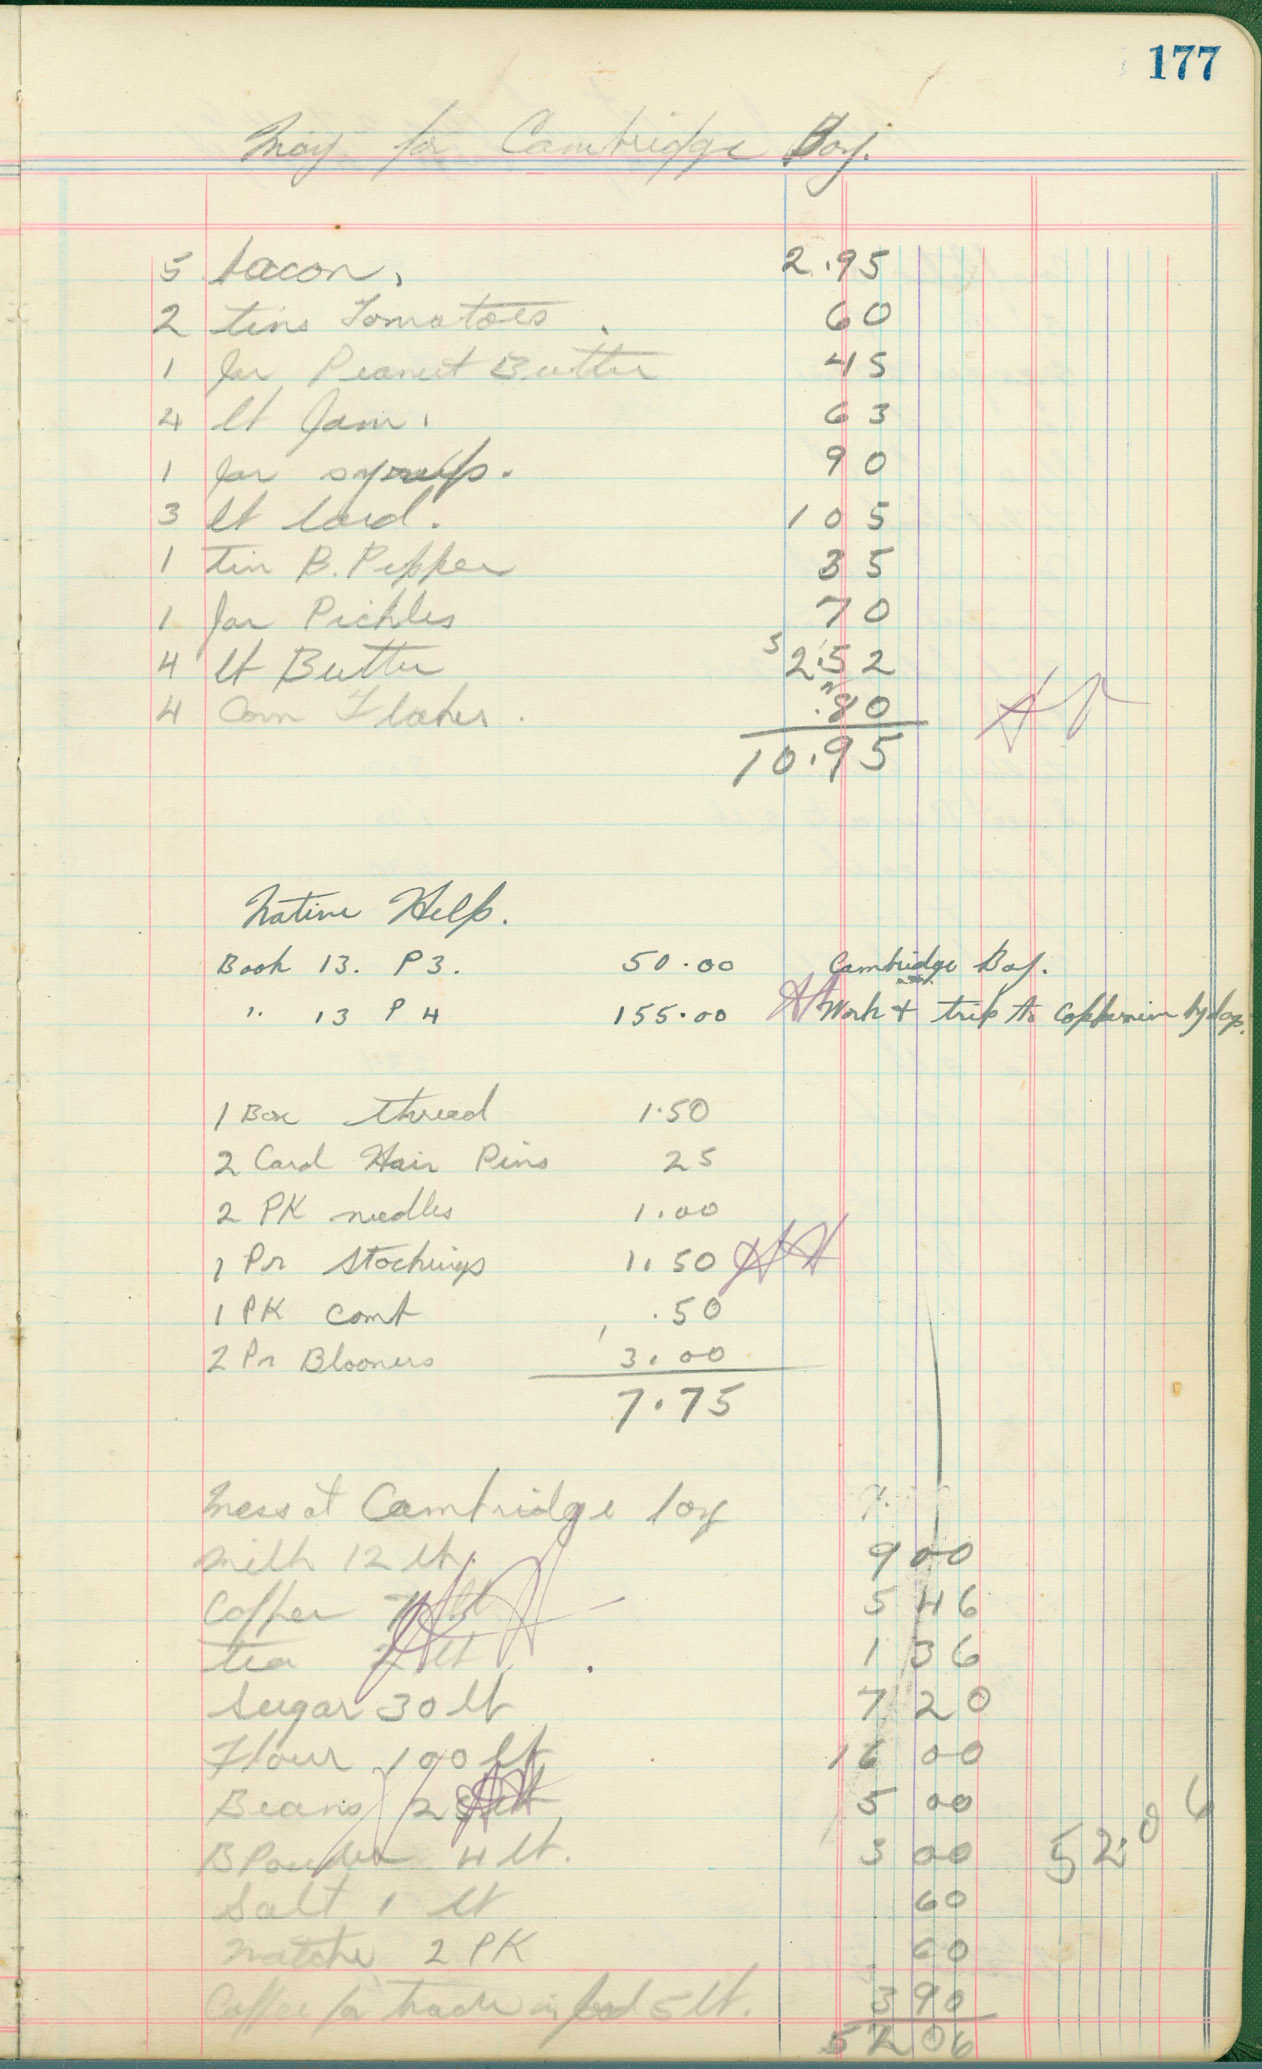 177
May for Cambridge Bay.
5 bacon, 2.95
2 tins Tomatoes. 60
1 Jar Peanut Butter 45
4 lt Jam. 63
1 Jar syrup. 90
3 lt lard. 105
1 Tin B. Pepper 35
1 Jar Pickles 70
4 lt Butter 2.52
4 Corn Flakes. .80
10.95
Native Help.
Book 13. P3. 50.00 Cambridge Bay.
" 13 P 4 155.00 Work & trip to Coppermine by dog.
1 Box thread 1.50
2 Card Hair Pins 25
2 PK needles 1.00
1 Pr Stockings 1.50
1 PK comt .50
2 Pr Bloomers 3.00
7.75
Mess at Cambridge bay
Milk 12 lt. 9 00
Coffee 7 lt 5 46
tea 2 lt 1 36
Sugar 30 lt 7 20
Flour 100 lt 16 00
Beans 25 lt 5 00
B Powder 4 lt. 3 00 52.06
Salt 1 lt 60
Matches 2 PK 60
Coffee for trade in 5 lt. 3 90
52 06